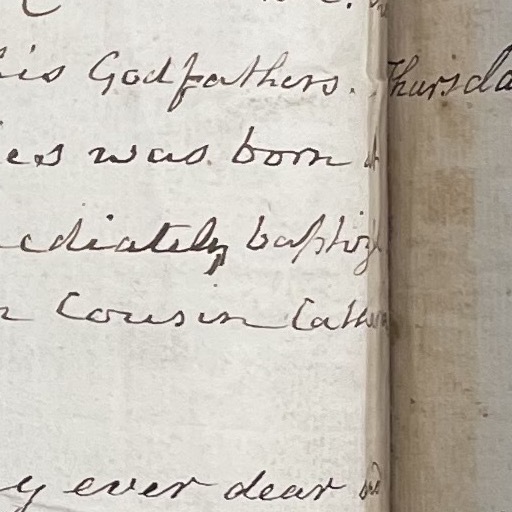 his Godfathers. Thursda
ies was born
ediately baptiz
n Cousin Cather
y ever dear